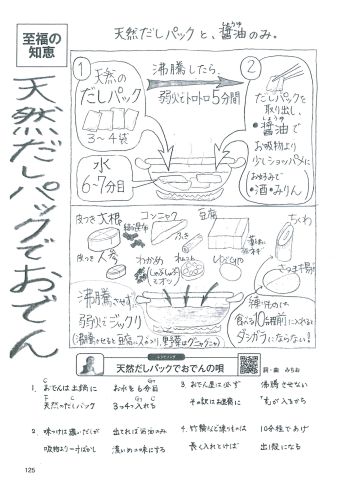 至福の
知恵
天然だしパックと、醤油のみ。
しょうゆ
天然だしパックでおでん
①
天然の
だしパック
3〜4袋
水
6〜7分目
沸騰したら、
弱火でトロトロ5分間
②
だしパックを
取り出し、
しょうゆ
・醤油で
お吸物より
少しショッパメに
お好みで
・酒・みりん
皮つき大根
コンニャク
豆腐
ちくわ
皮つき人参
わかめ
さつま揚
沸騰させず
弱火でジックリ
練りものは、
食べる10分程前に入れると
ダシガラにならない!
天然だしパックでおでんの唄
詞・曲 みちお
1. おでんは土鍋に お水を6分目
天然のだしパック 3つ4つ入れる
2. 味つけは濃いだしが 出てれば醤油のみ
吸物より一寸ばかし 濃いめの味にする
3. おでん屋は必ず 沸騰させない
4. 竹輪など練りものは 10分程であげ
長く入れとけば 出し殻になる
125